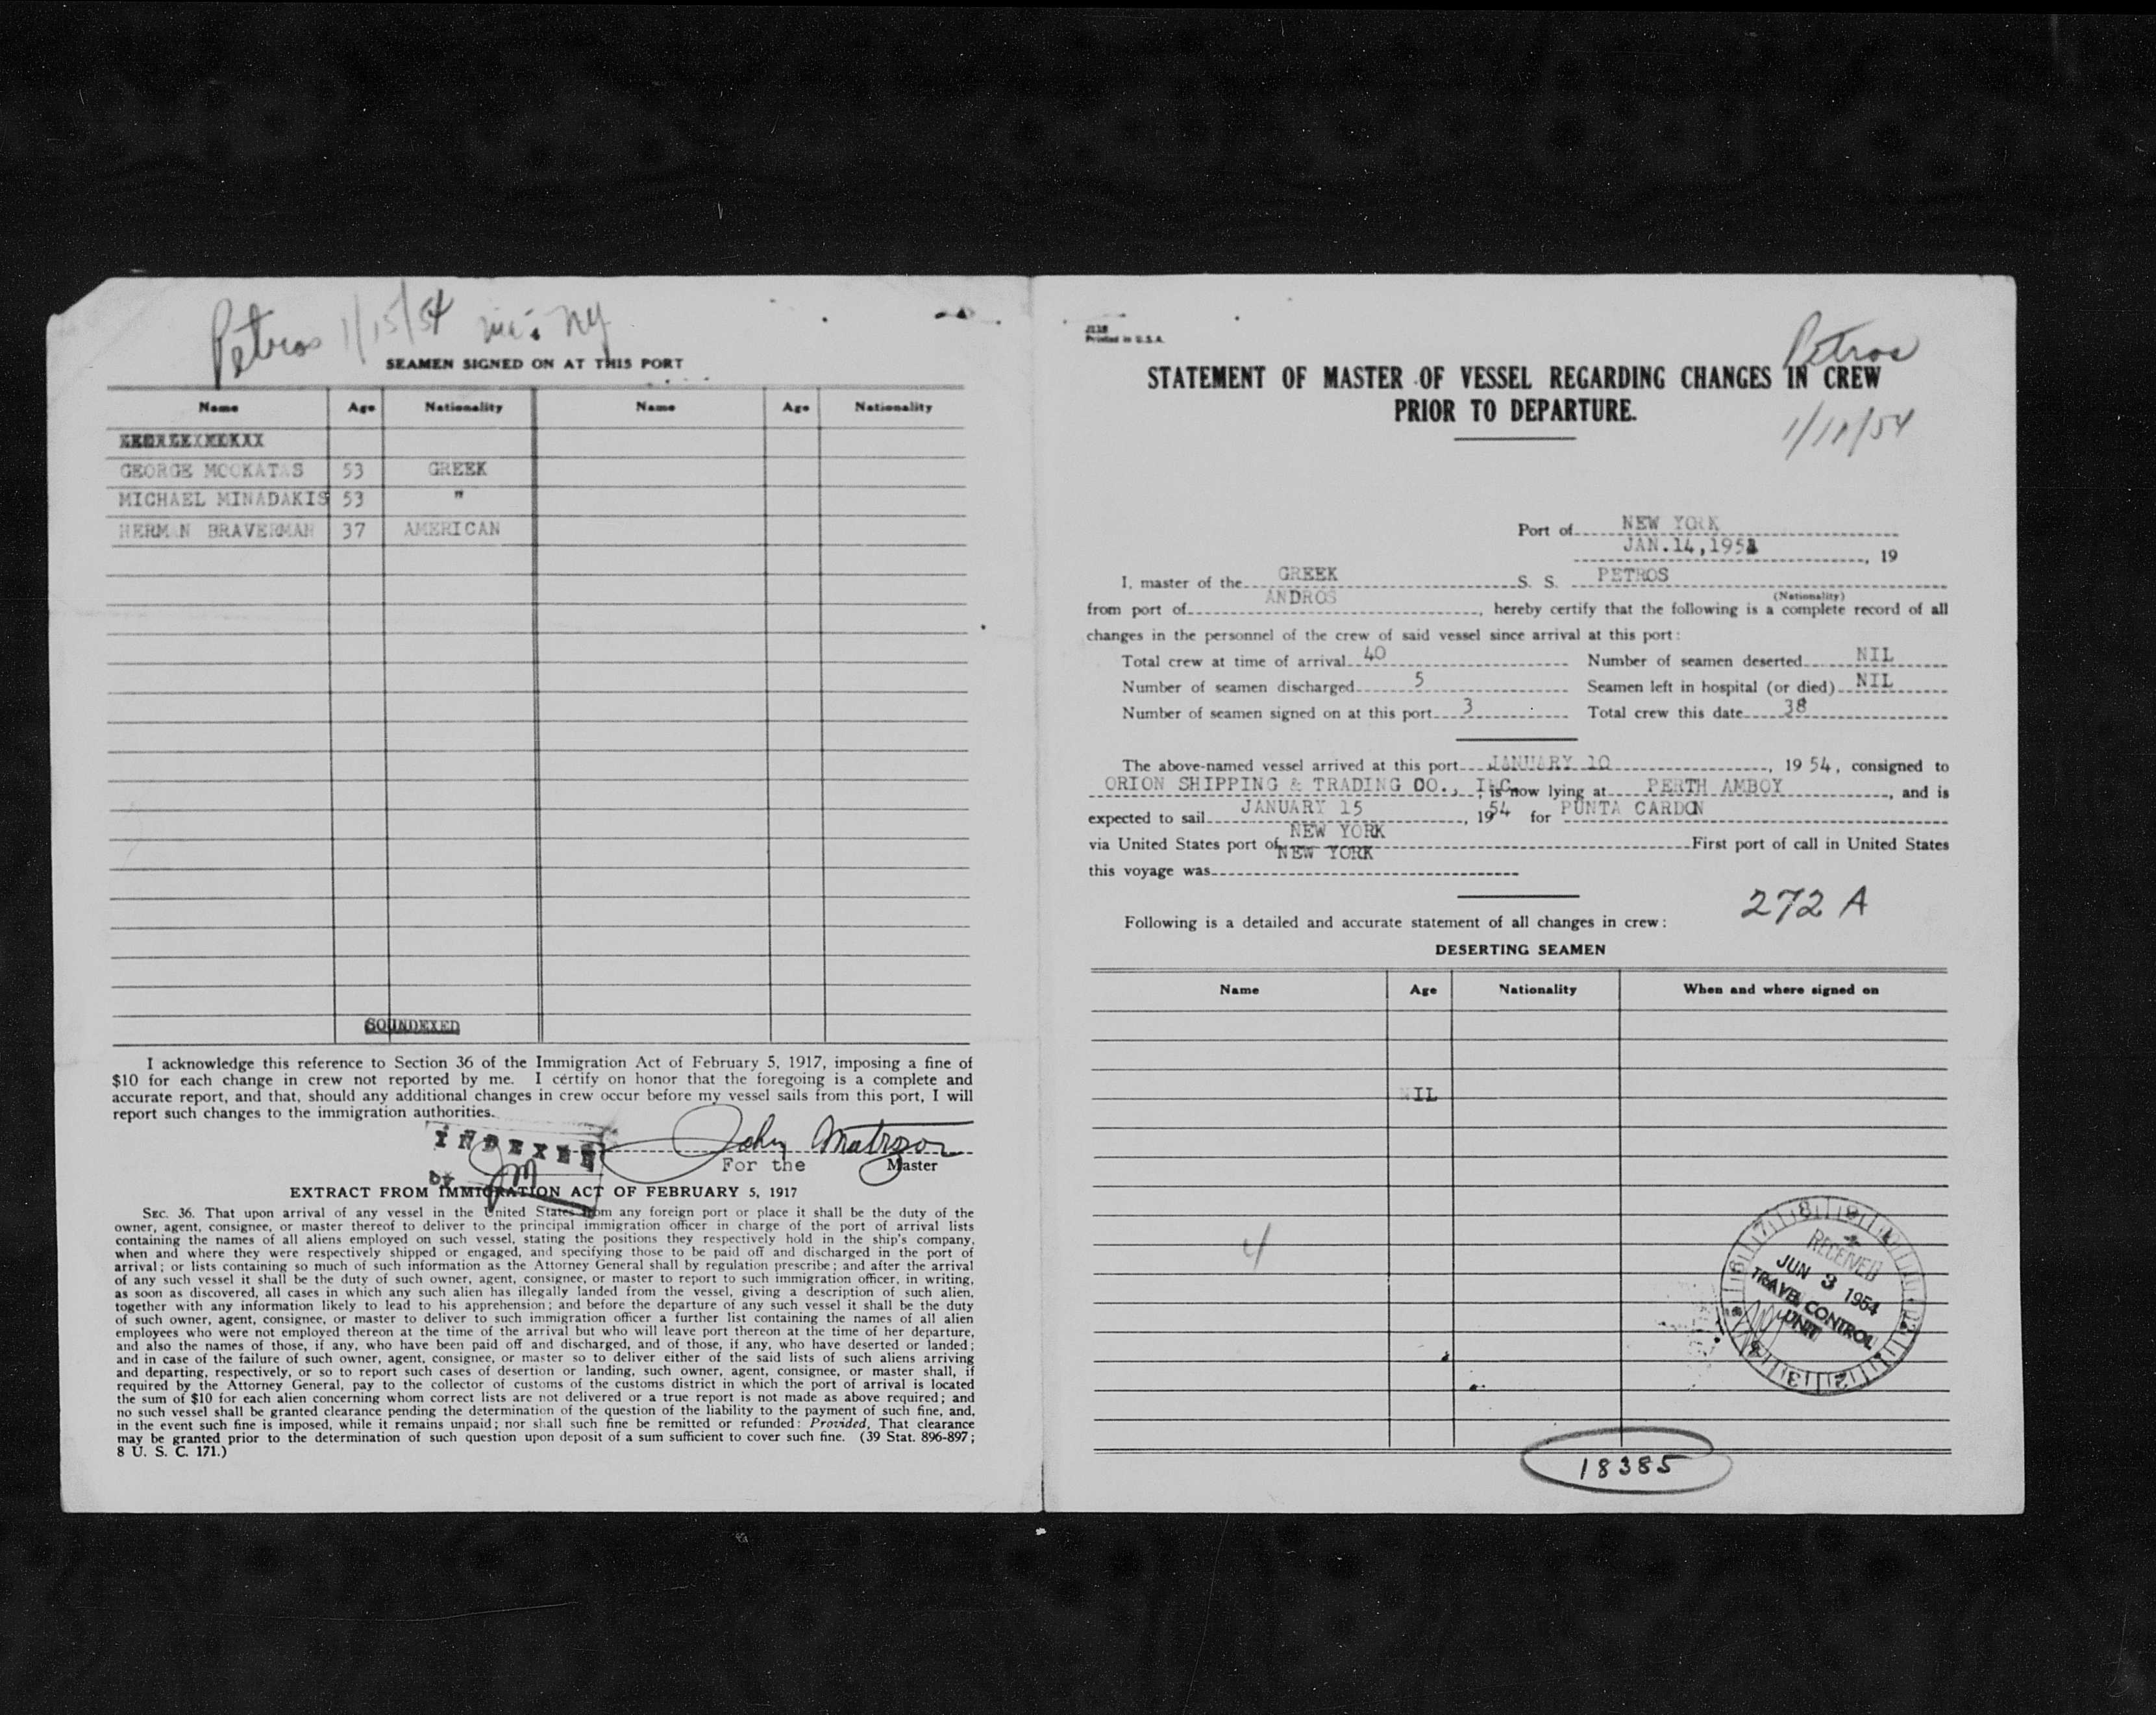 Petros 1/15/54 NY
SEAMEN SIGNED ON AT THIS PORT
Name Age Nationality Name Age Nationality
GEORGE MCOKATAS 53 GREEK
MICHAEL MINADAKIS 53 "
HERMAN BRAVERMAN 37 AMERICAN
SOUNDEXED
I acknowledge this reference to Section 36 of the Immigration Act of February 5, 1917, imposing a fine of
$10 for each change in crew not reported by me. I certify on honor that the foregoing is a complete and
accurate report, and that, should any additional changes in crew occur before my vessel sails from this port, I will
report such changes to the immigration authorities.
INDEXED
by JM
John Matrozos
For the Master
EXTRACT FROM IMMIGRATION ACT OF FEBRUARY 5, 1917
SEC. 36. That upon arrival of any vessel in the United States from any foreign port or place it shall be the duty of the
owner, agent, consignee, or master thereof to deliver to the principal immigration officer in charge of the port of arrival lists
containing the names of all aliens employed on such vessel, stating the positions they respectively hold in the ship's company,
when and where they were respectively shipped or engaged, and specifying those to be paid off and discharged in the port of
arrival; or lists containing so much of such information as the Attorney General shall by regulation prescribe; and after the arrival
of any such vessel it shall be the duty of such owner, agent, consignee, or master to report to such immigration officer, in writing,
as soon as discovered, all cases in which any such alien has illegally landed from the vessel, giving a description of such alien,
together with any information likely to lead to his apprehension; and before the departure of any such vessel it shall be the duty
of such owner, agent, consignee, or master to deliver to such immigration officer a further list containing the names of all alien
employees who were not employed thereon at the time of the arrival but who will leave port thereon at the time of her departure,
and also the names of those, if any, who have been paid off and discharged, and of those, if any, who have deserted or landed;
and in case of the failure of such owner, agent, consignee, or master so to deliver either of the said lists of such aliens arriving
and departing, respectively, or so to report such cases of desertion or landing, such owner, agent, consignee, or master shall, if
required by the Attorney General, pay to the collector of customs of the customs district in which the port of arrival is located
the sum of $10 for each alien concerning whom correct lists are not delivered or a true report is not made as above required; and
no such vessel shall be granted clearance pending the determination of the question of the liability to the payment of such fine, and,
in the event such fine is imposed, while it remains unpaid; nor shall such fine be remitted or refunded: Provided, That clearance
may be granted prior to the determination of such question upon deposit of a sum sufficient to cover such fine. (39 Stat. 896-897;
8 U. S. C. 171.)
J118
Printed in U.S.A.
Petros
STATEMENT OF MASTER OF VESSEL REGARDING CHANGES IN CREW
PRIOR TO DEPARTURE.
Port of NEW YORK
JAN.14,195 , 19
I, master of the GREEK S. S. PETROS
(Nationality)
from port of ANDROS, hereby certify that the following is a complete record of all
changes in the personnel of the crew of said vessel since arrival at this port:
Total crew at time of arrival 40 Number of seamen deserted NIL
Number of seamen discharged 5 Seamen left in hospital (or died) NIL
Number of seamen signed on at this port 3 Total crew this date 38
The above-named vessel arrived at this port JANUARY 10, 1954, consigned to
ORION SHIPPING & TRADING CO., INC, is now lying at PERTH AMBOY, and is
expected to sail JANUARY 15, 1954 for PUNTA CARDON
via United States port of NEW YORK First port of call in United States
this voyage was NEW YORK
272 A
Following is a detailed and accurate statement of all changes in crew:
DESERTING SEAMEN
Name Age Nationality When and where signed on
NIL
RECEIVED
JUN 3 1954
TRAVEL CONTROL
UNIT
18385